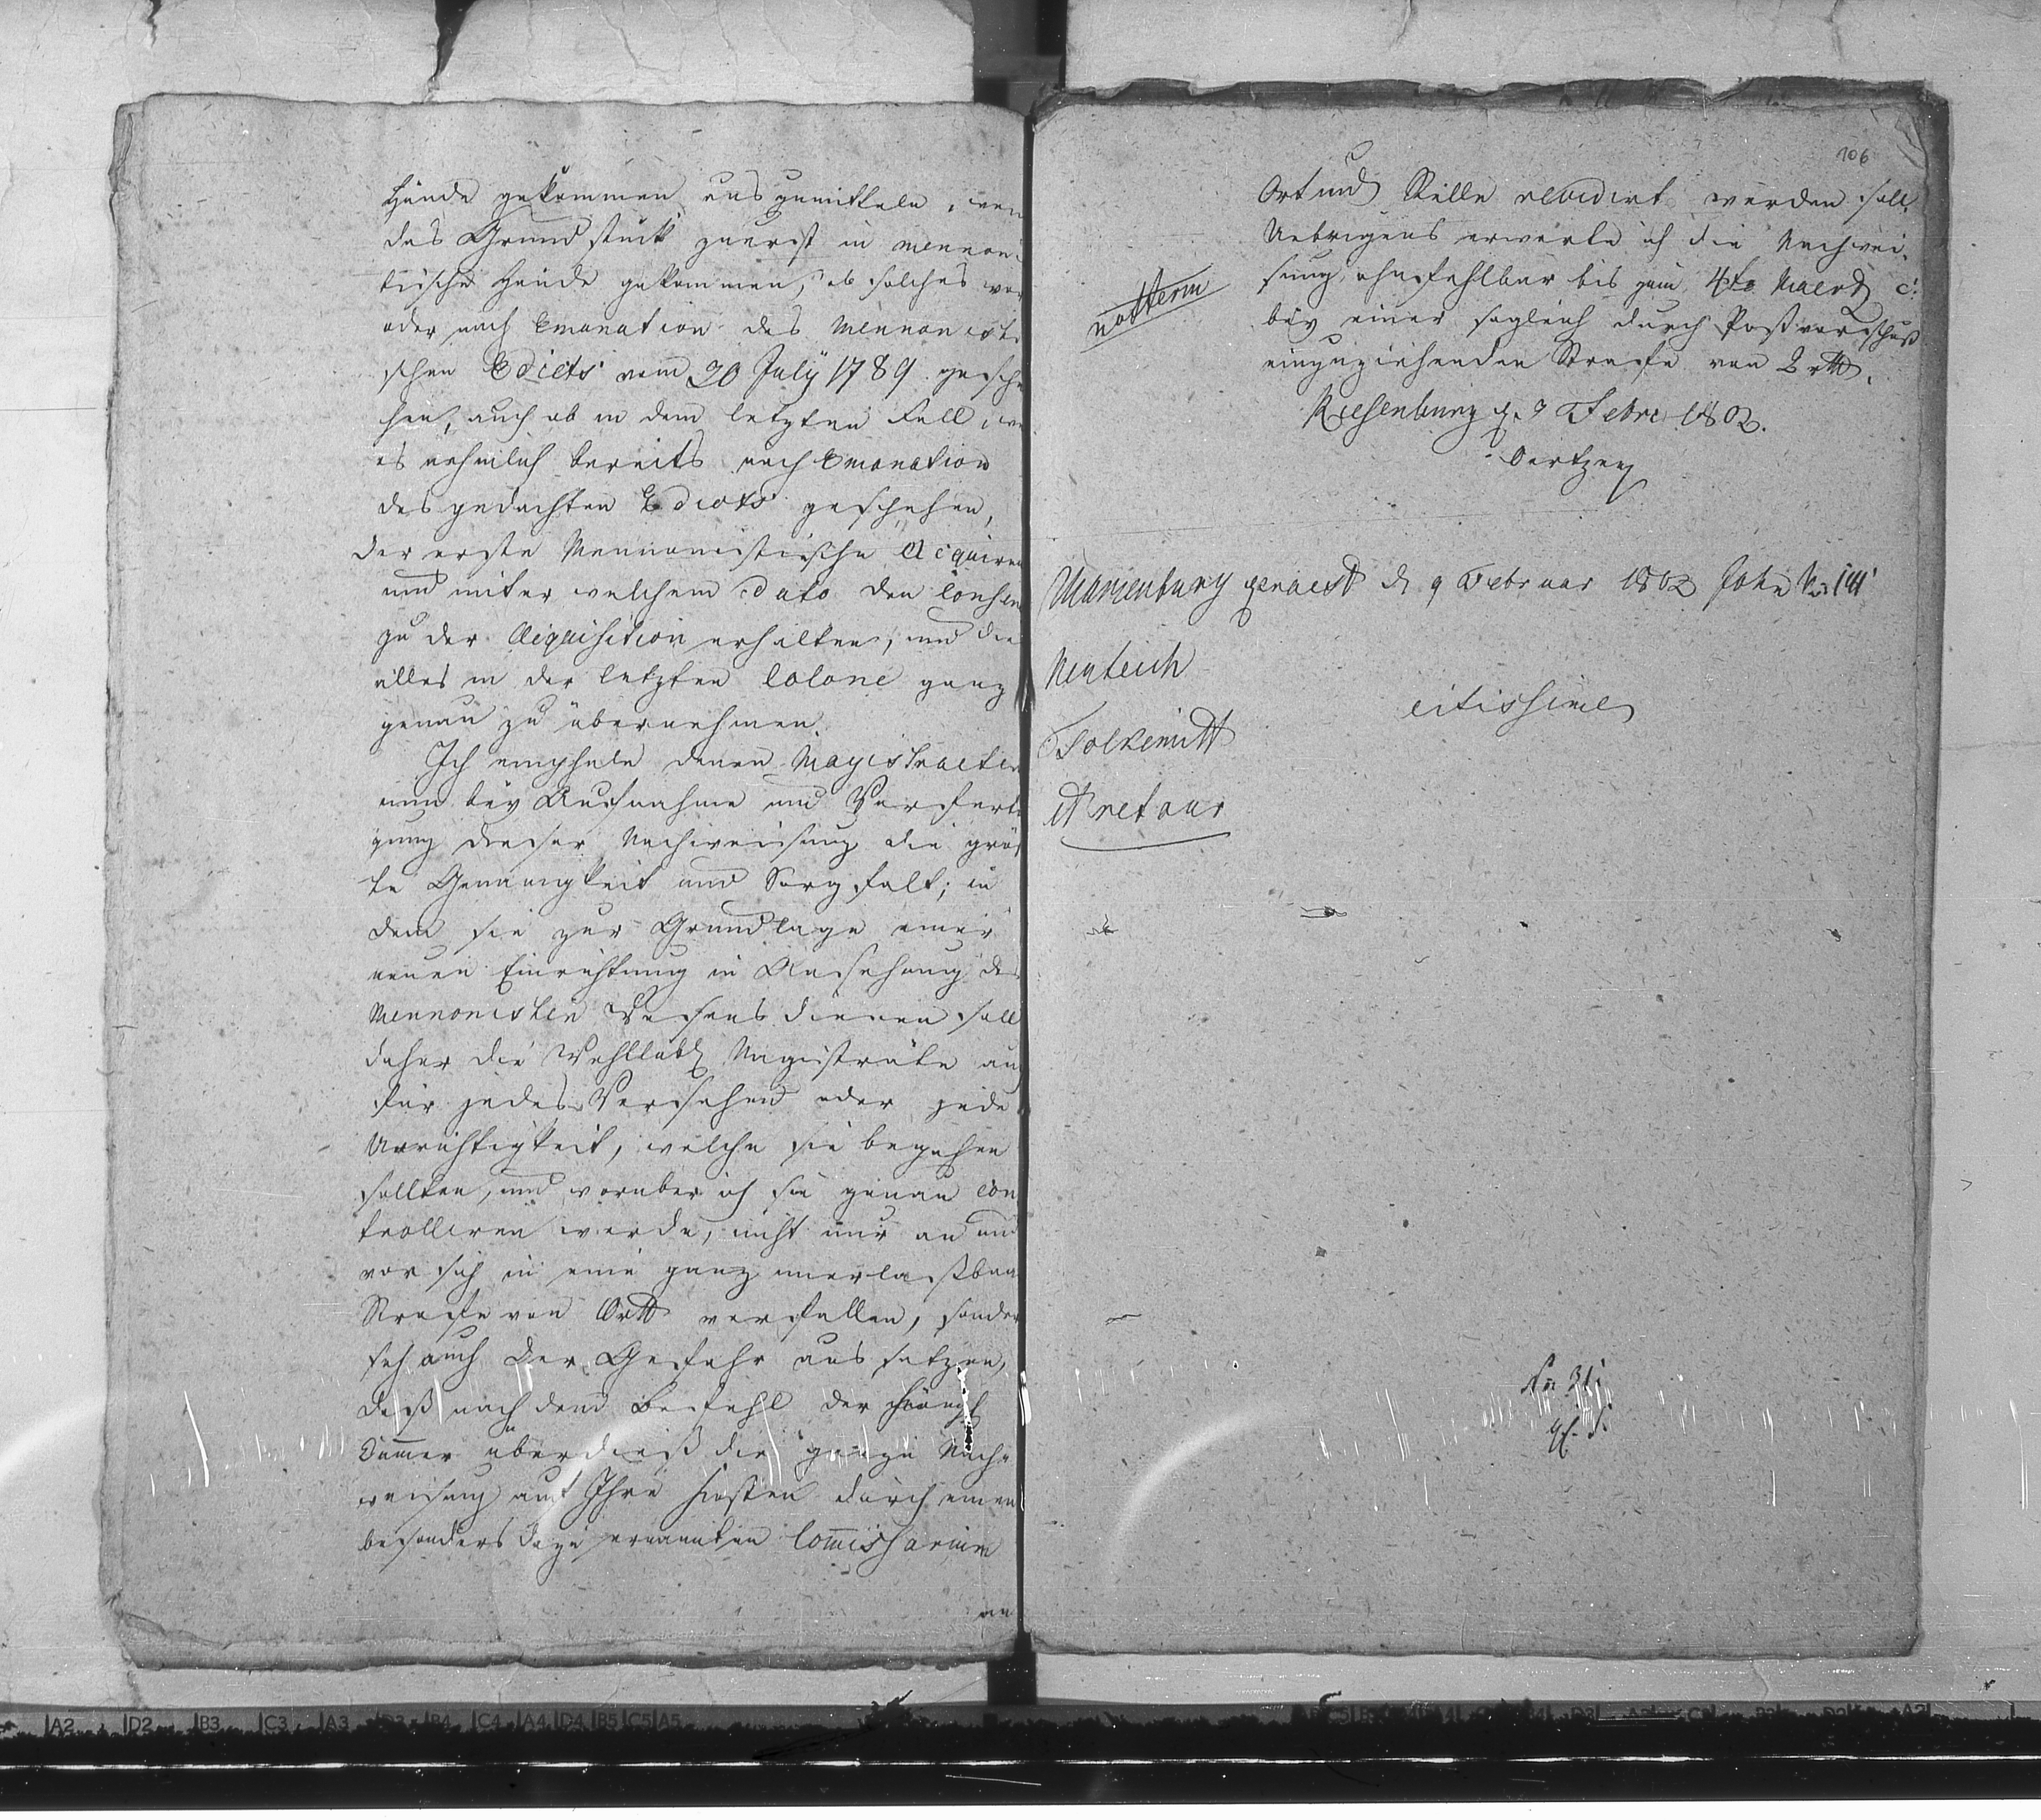 Hände gekommen auszumitteln, wen
das Grundstück zuerst in mennoni
tische Hände gekommen, ob solches vor
oder nach Emanation des Mennonisti
schen Edicts vom 30 July 1789 gesche
hen, auch ob in dem letzten Fall, wo
es nehmlich bereits nach Emanation
des gedachten Edicts geschehen,
der erste Mennonistische Acquiren
und unter welchem Dato den Consen
zu der Acquisition erhalten, und die
alles in der letzten Colone ganz
genau zu übernehmen.
Ich empfehle denen Magistraeten
nun bey Aufnahme und Verferti
gung dieser Nachweisung die größ
te Genauigkeit und Sorgfalt; in
dem sie zur Grundlage einer
neuen Einrichtung in Ansehung des
Mennonisten Wesens dienen soll
daher die Wohllöbl Magisträte auch
für jedes Versehen oder jede
Unrichtigkeit, welche sie begehen
sollten, und worüber ich sie genau con
trolliren werde, nicht nur an und
vor sich in eine ganz unerlaßbare
Strafe von verfallen, sonder
sich auch der Gefahr aussetzen,
daß nach dem Befehl der Königl
Cammer überdieß die ganze Nach=
weisung auf Ihre Kosten durch einen
besonders dazu ernannten Commissarium
an
106
Ort und Stelle revidirt werden soll.
Uebrigens erwarte ich die Nachwei=
sung ohnfehlbar bis zum 4te Maertz c:
bey einer sogleich durch Postvorschuß
einzuziehenden Strafe von 2 rtl.
Riesenburg d. 3 Febr 1802.
Oertzen
not Term
Marienburg d 9 Februar 1802
Neuteich
citissime
Tolkemitt
et retour
No 31